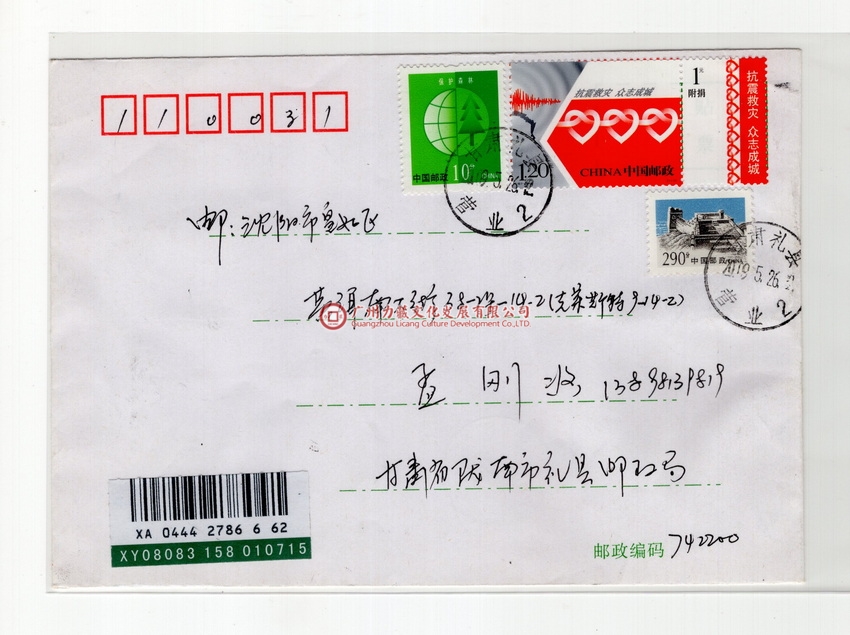 保护森林
中国邮政 10分 CHINA
抗震救灾 众志成城
CHINA中国邮政
1.20
1元
附捐
抗震救灾 众志成城
110031
肃礼
营业 2
290分 中国邮政
肃礼县
2019.5.26
营业 2
邮：沈阳市皇姑区
38-2号-14-2(克莱斯特9-14-2)
广州力藏文化发展有限公司
Guangzhou Licang Culture Development Co.,LTD
刚 收 13898139819
甘肃省陇南市礼县邮政局
XA 0444 2786 6 62
XY08083 158 010715
邮政编码 742200